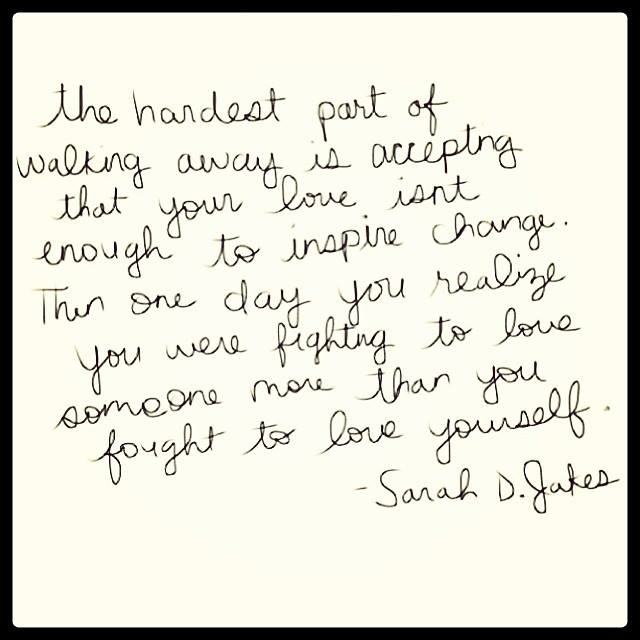 the hardest part of
walking away is accepting
that your love isnt
enough to inspire change.
Then one day you realize
you were fighting to love
someone more than you
fought to love yourself.
-Sarah D. Jakes